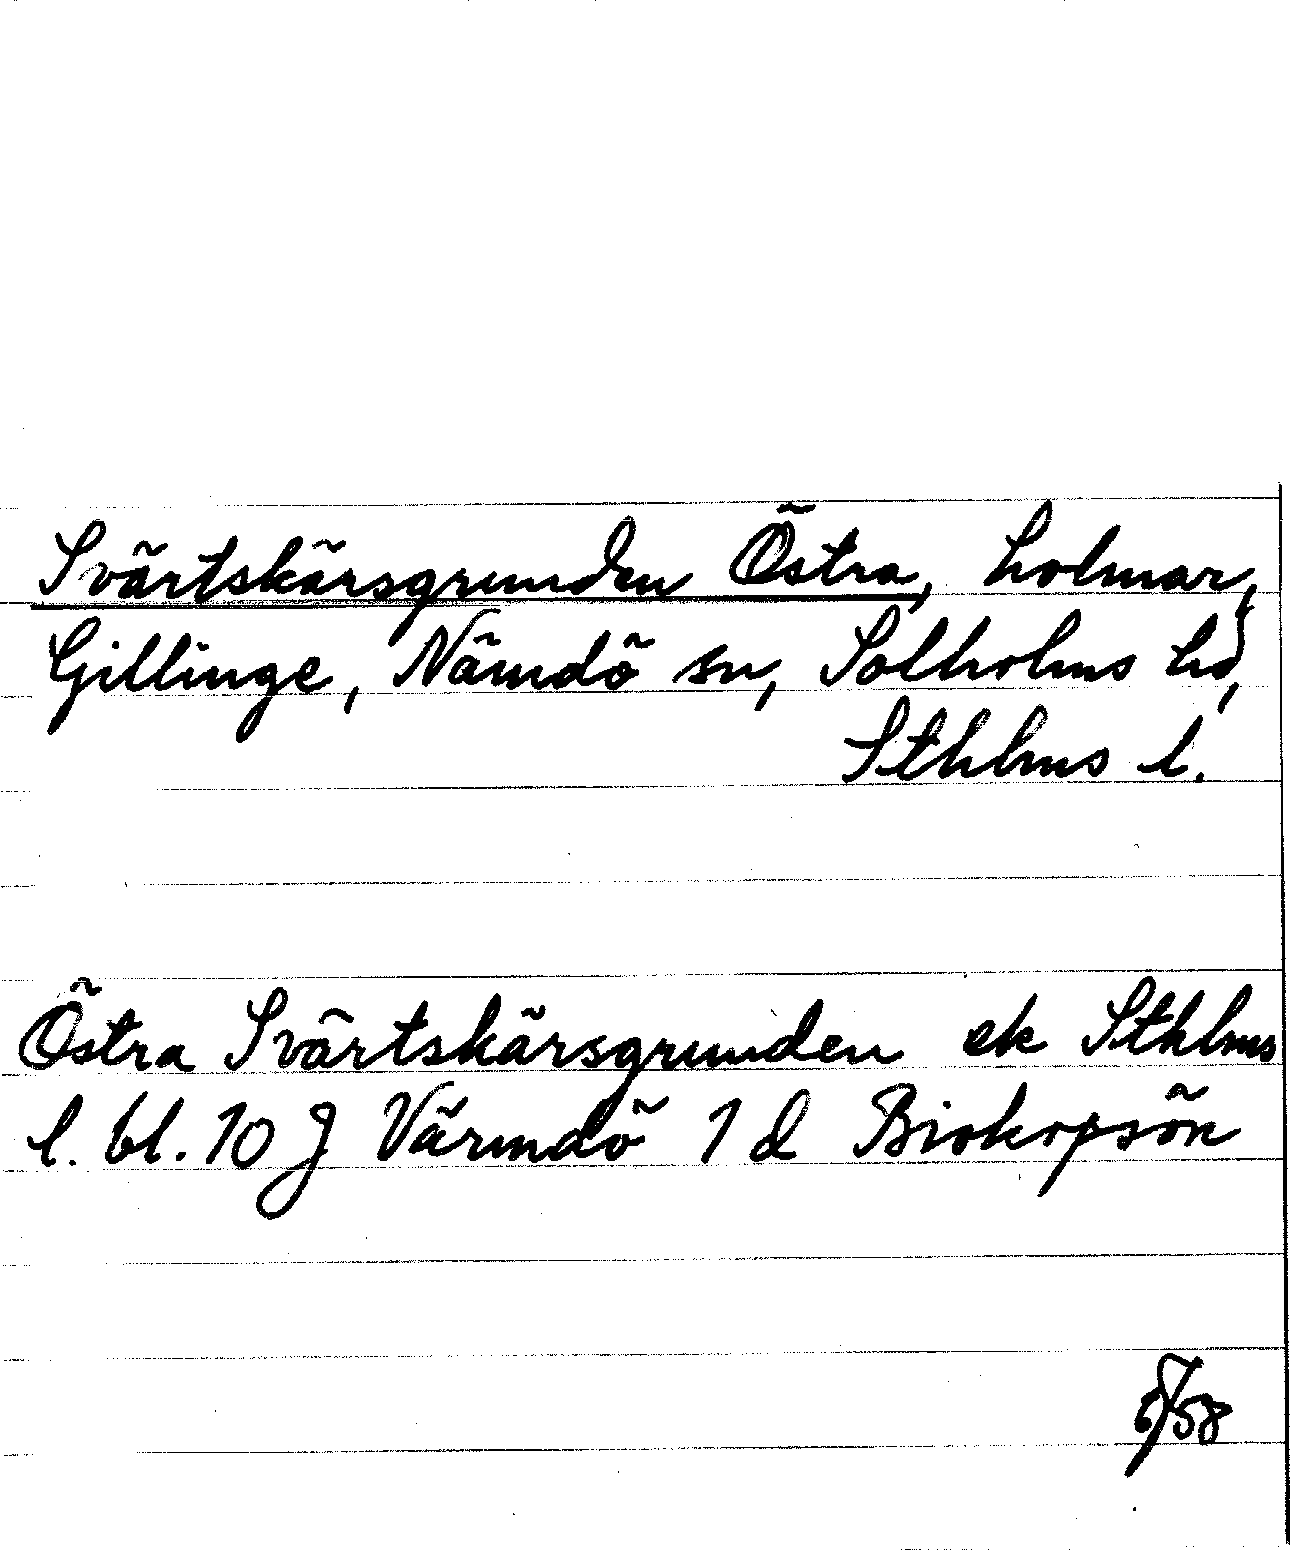 Svärtskärsgrunden Östra, holmar,
Gillinge, Nämdö sn, Sollholms hd,
Sthlms l.
Östra Svärtskärsgrunden ek Sthlms
l. bl. 10 J Värmdö 1 d Biskopsön
/58